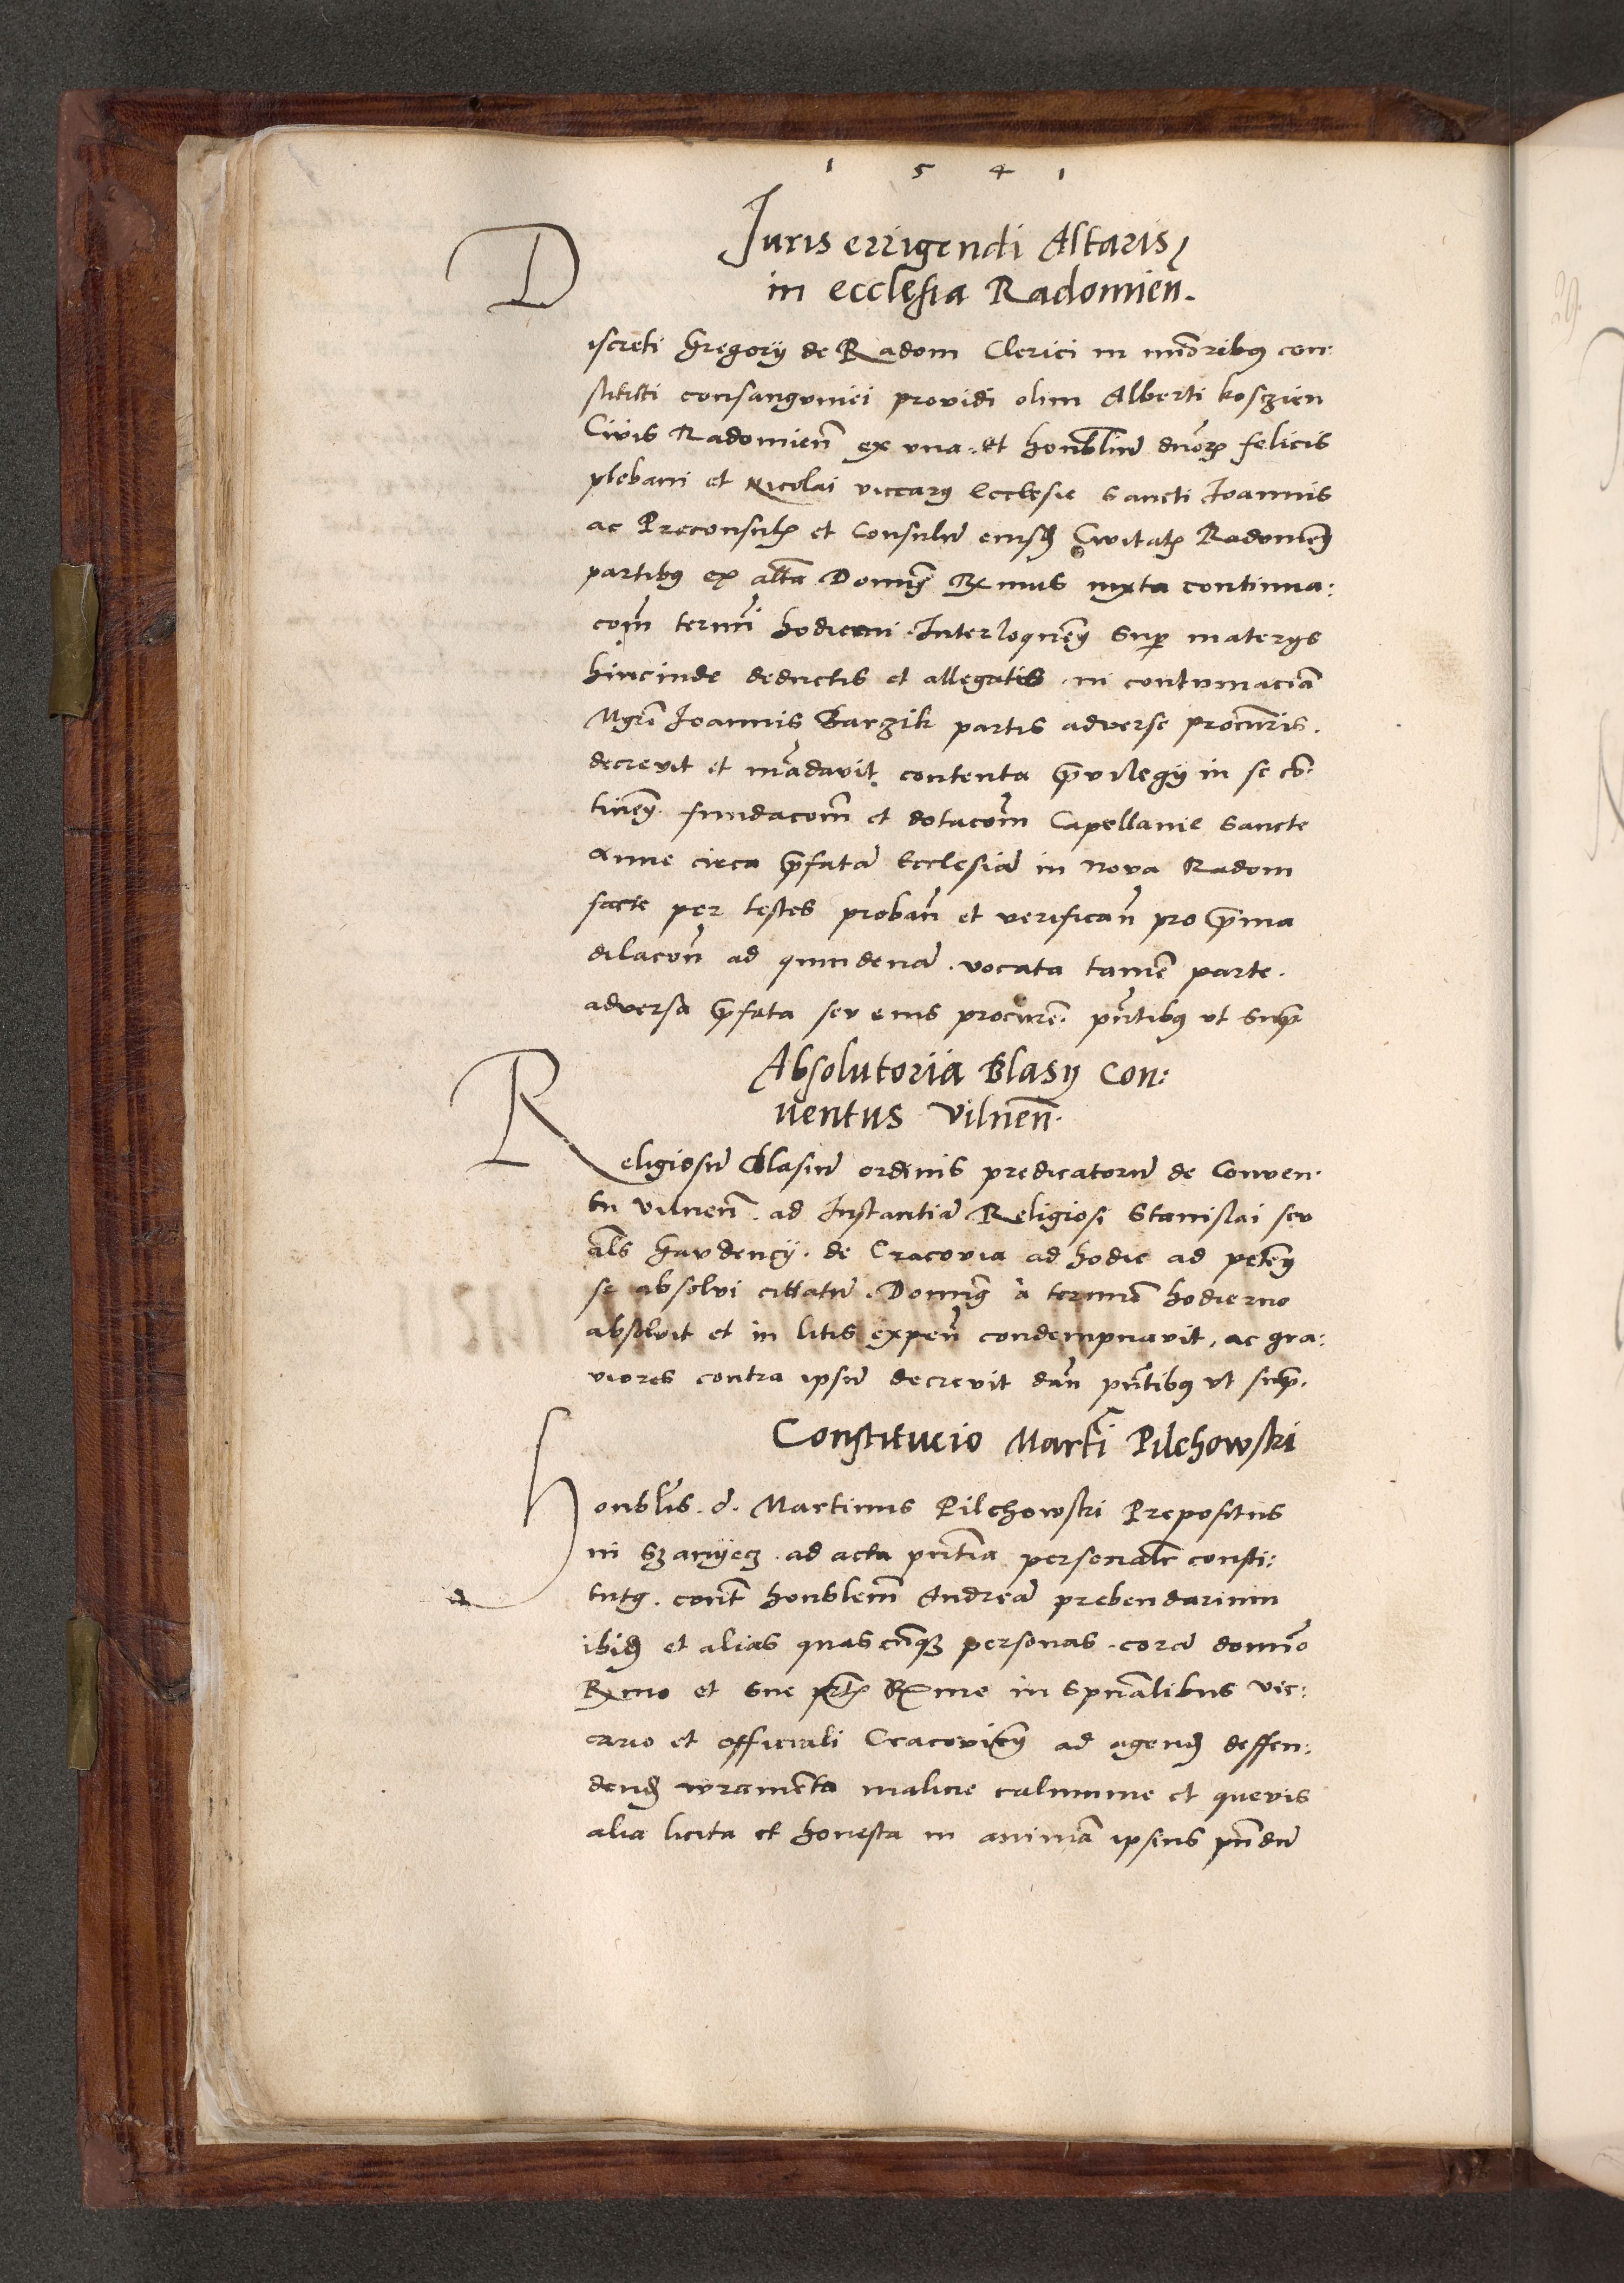 1 5 4 1
Juris errigendi Altaris
in ecclesia Radomien̄.
Discreti Gregorÿ de Radom Clerici in mīoribꝰ con
stituti consangvinei providi olim Alberti koszien
Civis Radomien̄ ex vna. et honbliū dnōꝝ felicis
plebani et Nicolai viccarÿ Ecclesie Sancti Joannis
ac Preconsulꝭ et Consulū eiusꝺ Civitatꝭ Radomieñ
partibꝰ ex alta Domꝰ Rxmus iuxta continua:
com̄ term̄i hodierni Interloqueñ Sup materÿs
hincinde deductis et allegatis in contumaciā
Mgrī Joannis Barzik partis adverse procuris.
decrevit et mādavit contenta pvilegÿ in se cō
tineñ fundacom̄ et dotacom̄ Capellanie Sancte
Anne circa pfatā Ecclesiā in nova Radom
facte per testes proban̄ et verifican̄ pro pma
dilacōn ad quindenā. vocata tamē parte.
adversa pfata sev eius procurē. pn̄tibꝰ vt sup
Absolutoria Blasÿ Con:
uentus Vilnen̄.
Religiosū Blasiū ordinis predicatorū de Conven
tu Vilnen̄ ad Instantiā Religiosi Stanislai sev
als̄ Gavdencÿ de Cracovia ad hodie ad peteñ
se absolvi cittatū. Domꝰ à termīo hodierno
absolvit et in litis expen̄ condempnavit, ac gra:
viores contra ipsū decrevit dan̄ pn̄tibꝰ vt sup.
Constitucio Martī Pilchowski
Honblis. d. Martinus Pilchowski Prepositus
in Szanÿecz ad acta pn̄tia personalr consti:
tutꝰ. cont̄ honblem̄ Andreā prebendarium
ibiꝺ et alias quascūqꝫ personas corā domīo
Rxmo et sue prtꝭ Rxme in Spualibus vic:
cario et officiali Cracovieñ ad agenꝺ deffen:
denꝺ iuramēta malicie calumnie et quevis
alia licita et honesta in animā ipsius pn̄dū